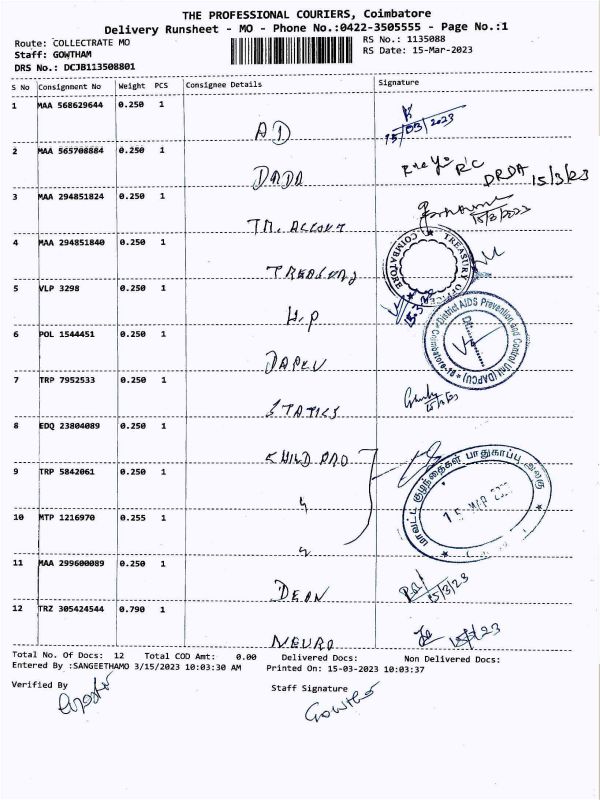 THE PROFESSIONAL COURIERS, Coimbatore
Delivery Runsheet - MO - Phone No.:0422-3505555 - Page No.:1
Route: COLLECTRATE MO RS No.: 1135088
Staff: GOWTHAM RS Date: 15-Mar-2023
DRS No.: DCJB113508801
S No Consignment No Weight PCS Consignee Details Signature
1 MAA 568629644 0.250 1
AD 15/03/2023
2 MAA 565708884 0.250 1
DRDA DRDA 15/3/23
3 MAA 294851824 0.250 1
15/3/2023
4 MAA 294851840 0.250 1
TREASURY OF COIMBATORE
5 VLP 3298 0.250 1
H.P
District AIDS Prevention and Control Unit (DAPCU) Coimbatore-18
6 POL 1544451 0.250 1
DAPCU
7 TRP 7952533 0.250 1
15/3/23
8 EDQ 23804089 0.250 1
CHILD PRO
மாவட்ட குழந்தைகள் பாதுகாப்பு அலகு
9 TRP 5842061 0.250 1
15 MAR 2023
10 MTP 1216970 0.255 1
11 MAA 299600089 0.250 1
DEAN 15/3/23
12 TRZ 305424544 0.790 1
NEURO 15/3/23
Total No. Of Docs: 12 Total COD Amt: 0.00 Delivered Docs: Non Delivered Docs:
Entered By :SANGEETHAMO 3/15/2023 10:03:30 AM Printed On: 15-03-2023 10:03:37
Verified By Staff Signature
Gowtham